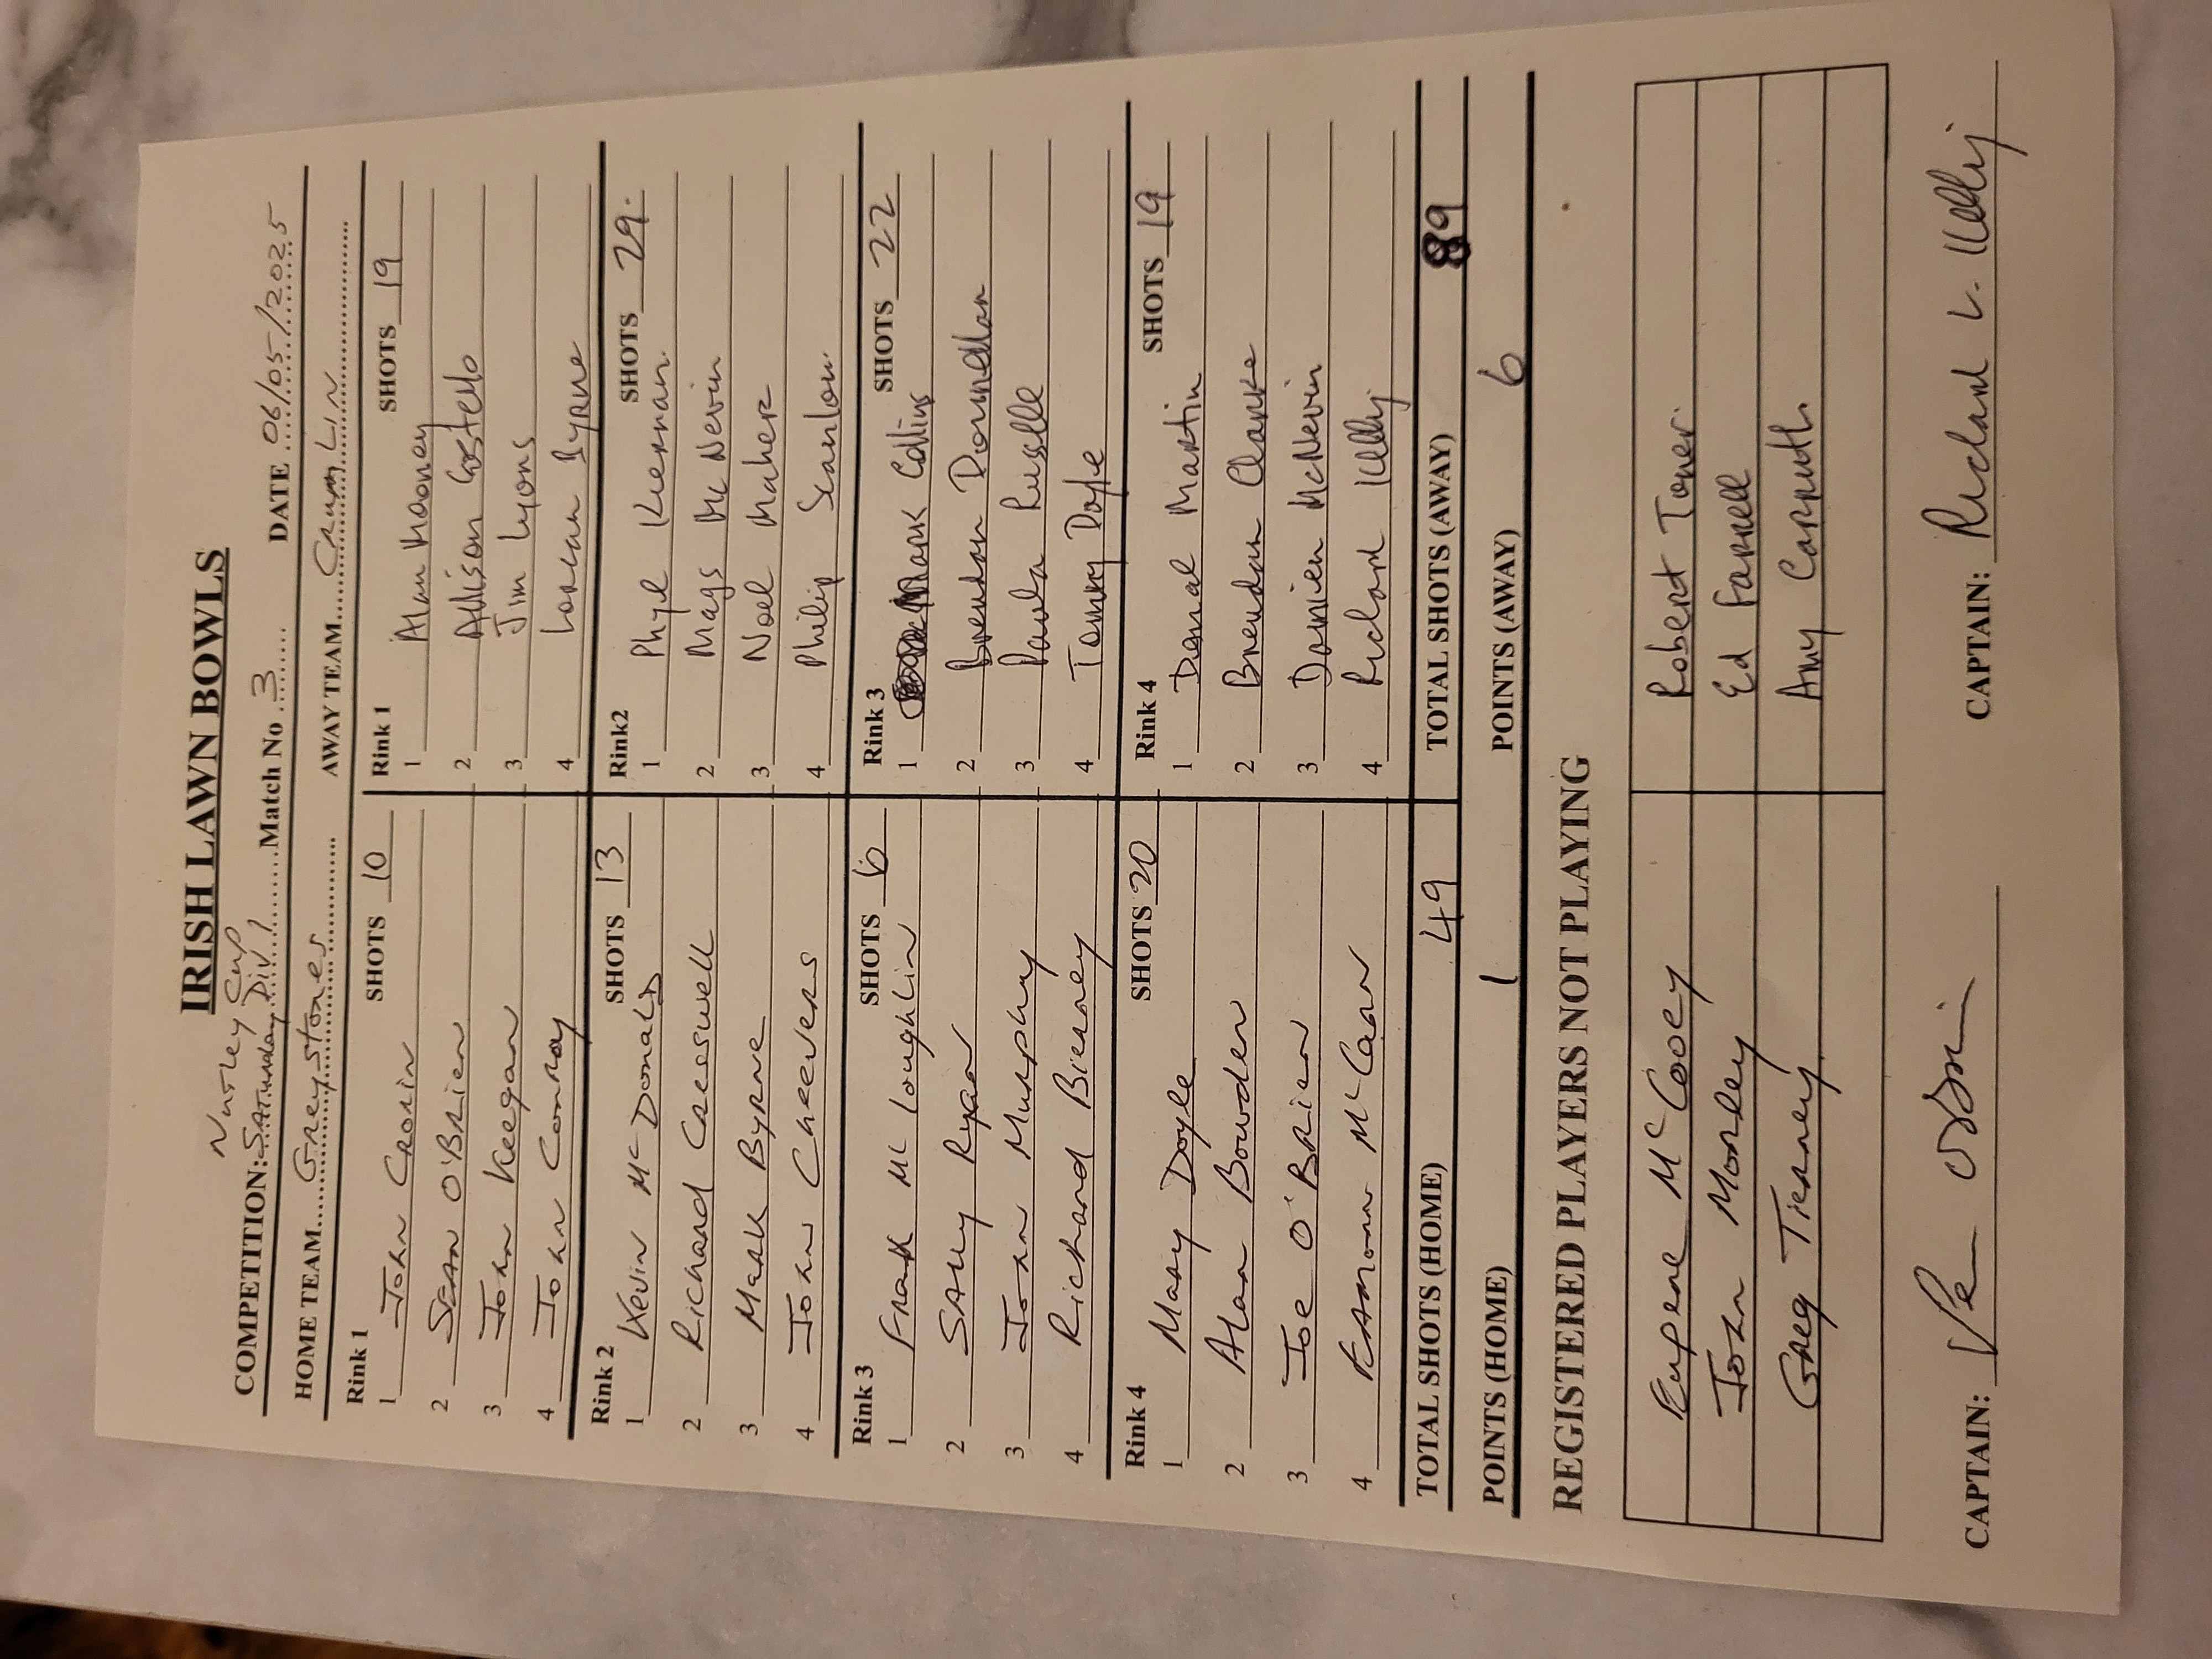 IRISH LAWN BOWLS
Nutley Cup
COMPETITION: Saturday Div 1 Match No 3 DATE 06/05/2025
HOME TEAM Greystones AWAY TEAM Crumlin
Rink 1 SHOTS 10 Rink 1 SHOTS 19
1 John Cronin 1 Alan Mooney
2 Sean O'Brien 2 Allison Costello
3 John Keegan 3 Jim Lyons
4 John Conroy 4 Lorcan Byrne
Rink 2 SHOTS 13 Rink2 SHOTS 29
1 Kevin McDonald 1 Phyl Kiernan
2 Richard Cresswell 2 Mags McNevin
3 Mark Byrne 3 Noel Maher
4 John Cheevers 4 Philip Scanlon
Rink 3 SHOTS 6 Rink 3 SHOTS 22
1 Frank McLoughlin 1 Mark Collins
2 Sally Ryan 2 Brendan Donnellan
3 John Murphy 3 Paula Russell
4 Richard Bierney 4 Tommy Doyle
Rink 4 SHOTS 20 Rink 4 SHOTS 19
1 Mary Doyle 1 Donal Martin
2 Alan Bowden 2 Brendan Clarke
3 Joe O'Brien 3 Damien McNevin
4 Eamonn McCann 4 Richard Kelly
TOTAL SHOTS (HOME) 49 TOTAL SHOTS (AWAY) 89
POINTS (HOME) 1 POINTS (AWAY) 6
REGISTERED PLAYERS NOT PLAYING
Eugene McCooey Robert Toner
John Morley Ed Farrell
Greg Tierney Amy Carruth
CAPTAIN: CAPTAIN: Richard L. Kelly